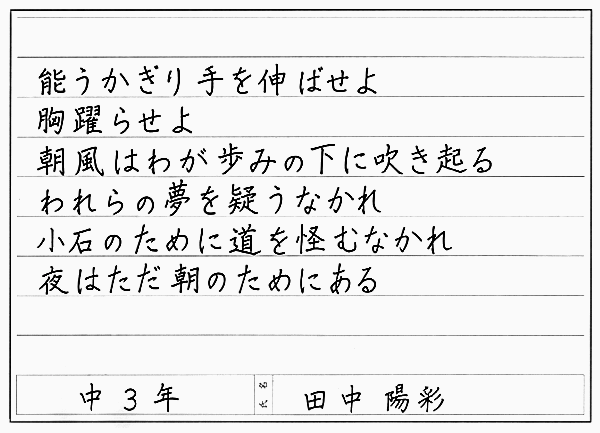 能うかぎり手を伸ばせよ
胸躍らせよ
朝風はわが歩みの下に吹き起る
われらの夢を疑うなかれ
小石のために道を怪むなかれ
夜はただ朝のためにある
中3年 氏名 田中陽彩